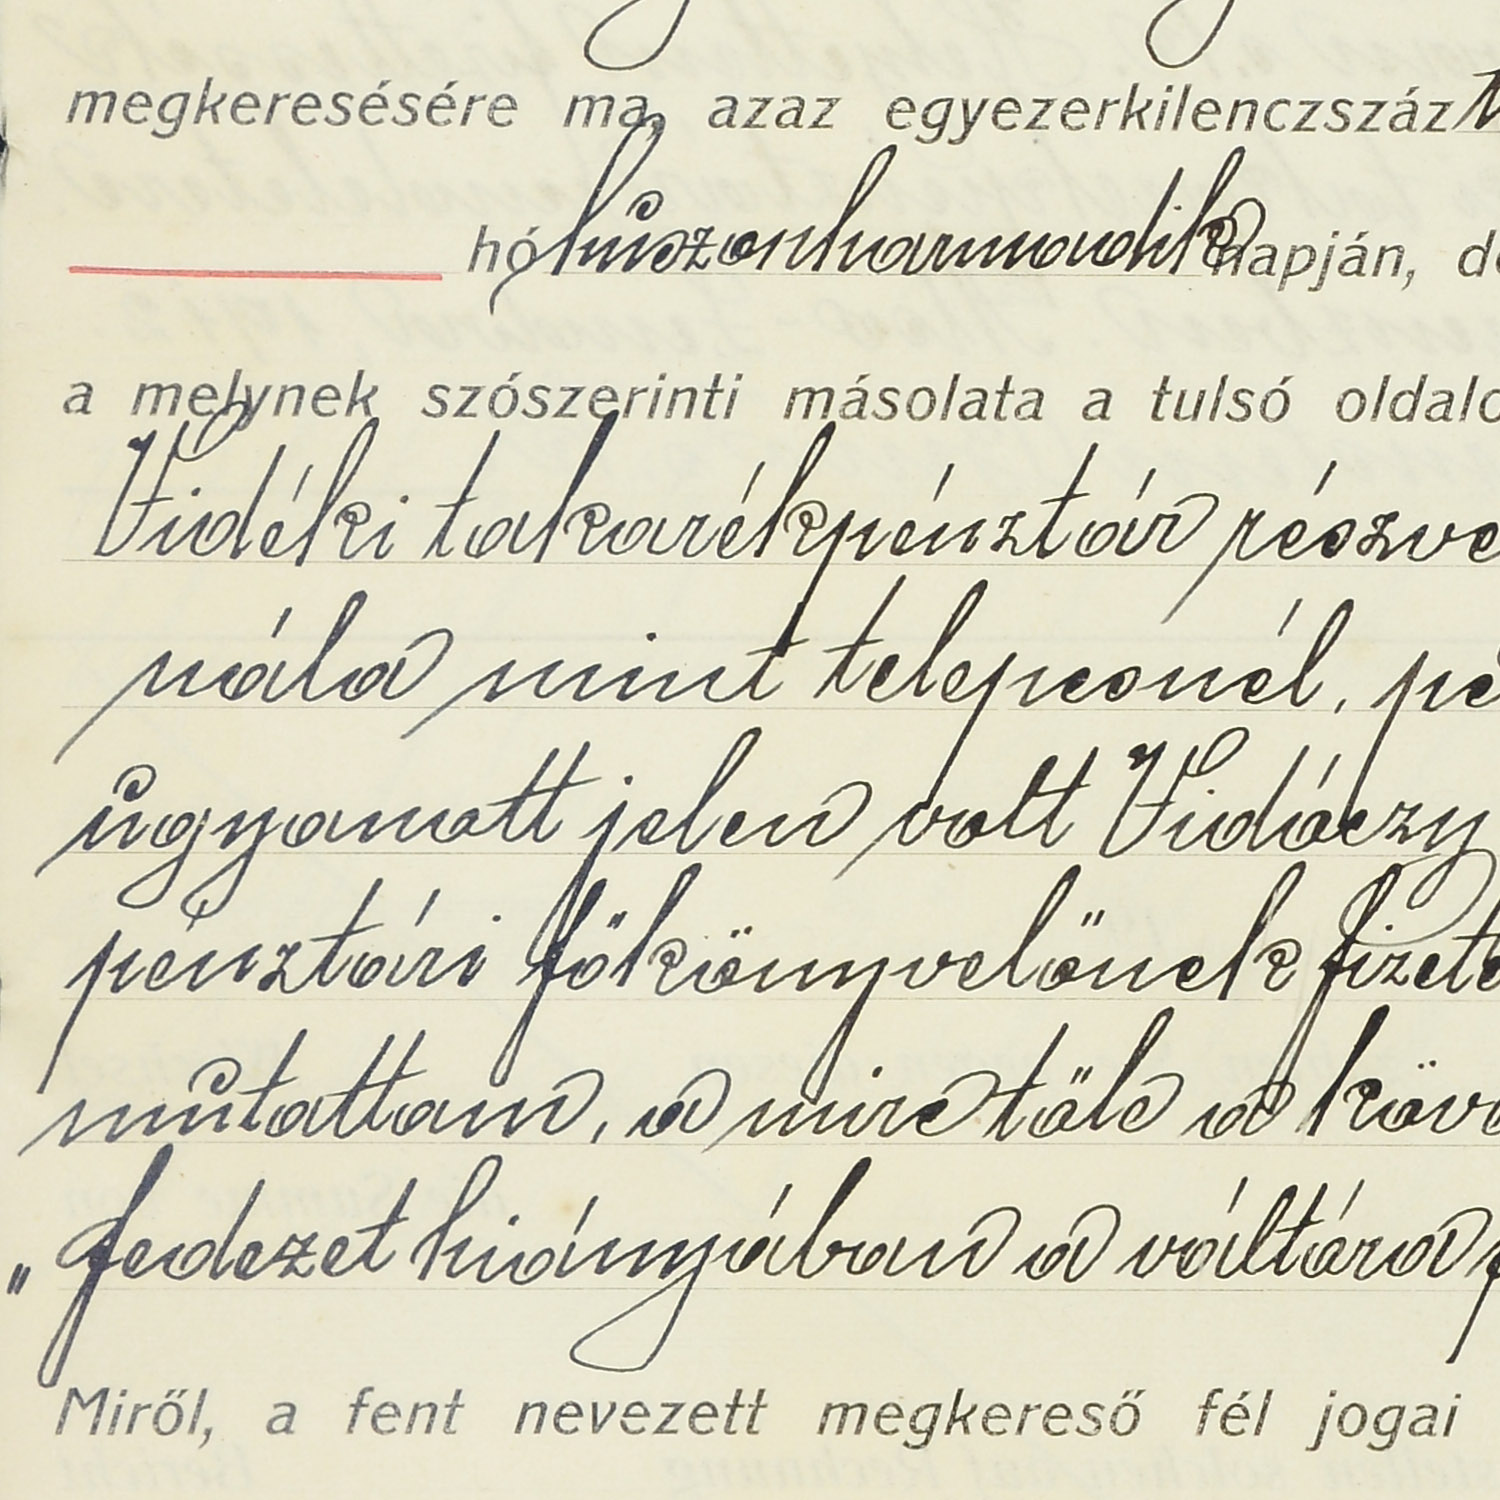 megkeresésére ma, azaz egyezerkilenczszáz
hó huszonharmadik napján, de
a melynek szószerinti másolata a tulsó oldalo
Vidéki takarékpénztár részve
nála mint telepesnél, pe
ugyanott jelen volt Vidóczy
pénztári főkönyvelőnek fizete
mutattam, a mire tőle a köve
„fedezet hiányában a váltóra f
Miről, a fent nevezett megkereső fél jogai